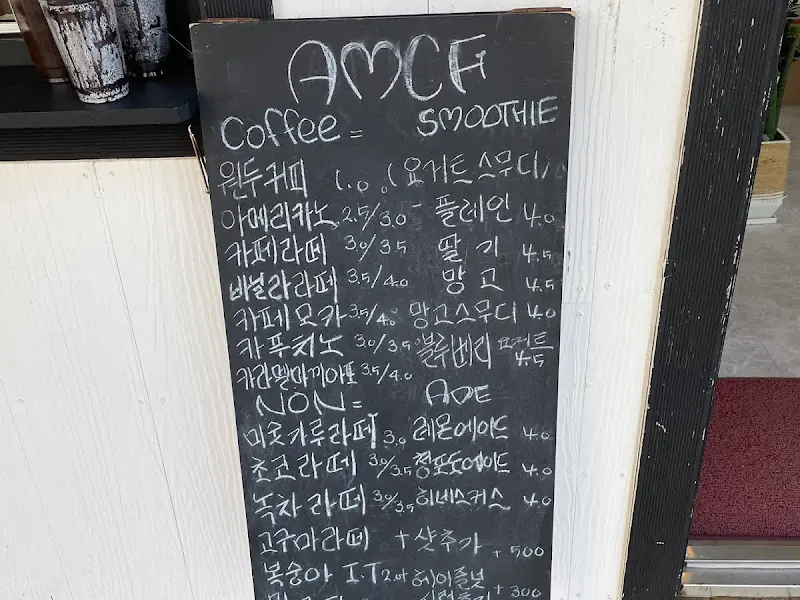 AMCF
Coffee =
원두커피 1.0
아메리카노 2.5/3.0
카페라떼 3.0/3.5
바닐라라떼 3.5/4.0
카페모카 3.5/4.0
카푸치노 3.0/3.5
카라멜마끼아또 3.5/4.0
NON =
미숫가루라떼 3.0
초코라떼 3.0/3.5
녹차라떼 3.0/3.5
고구마라떼
복숭아 I.T
SMOOTHIE
(요거트스무디)
플레인 4.0
딸기 4.5
망고 4.5
망고스무디 4.0
블루베리 요거트 4.5
ADE
레몬에이드 4.0
청포도에이드 4.0
히비스커스 4.0
+ 샷추가 + 500
+ 300